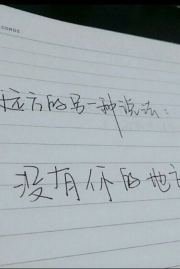 远方的另一种说法:
没有你的地